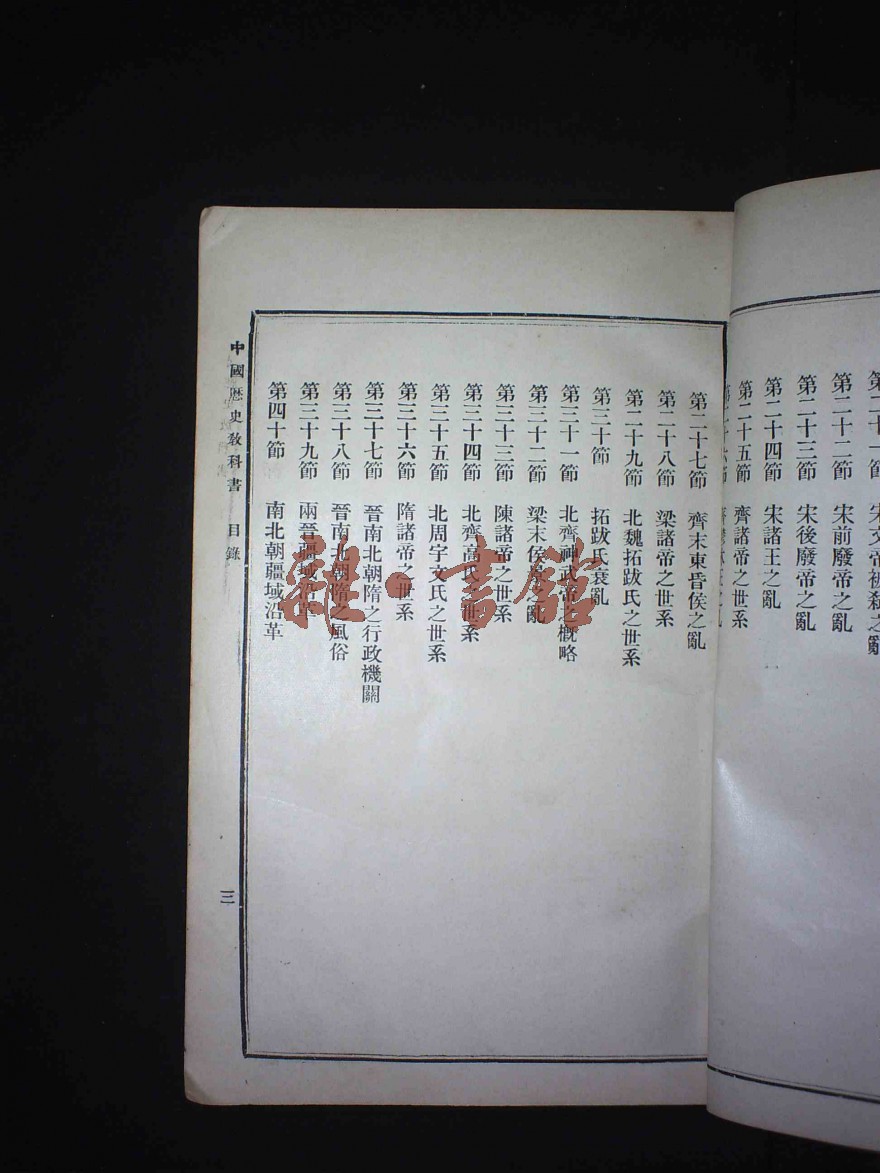 第二十一節 宋文帝被弒之亂
第二十二節 宋前廢帝之亂
第二十三節 宋後廢帝之亂
第二十四節 宋諸王之亂
第二十五節 齊諸帝之世系
第二十六節
第二十七節 齊末東昏侯之亂
第二十八節 梁諸帝之世系
第二十九節 北魏拓跋氏之世系
第三十節 拓跋氏衰亂
第三十一節 北齊神武帝之概略
第三十二節 梁末侯景之亂
第三十三節 陳諸帝之世系
第三十四節 北齊高氏之世系
第三十五節 北周宇文氏之世系
第三十六節 隋諸帝之世系
第三十七節 晉南北朝隋之行政機關
第三十八節 晉南北朝隋之風俗
第三十九節 兩晉疆域沿革
第四十節 南北朝疆域沿革
中國歷史敎科書 目錄
三
雜·書館